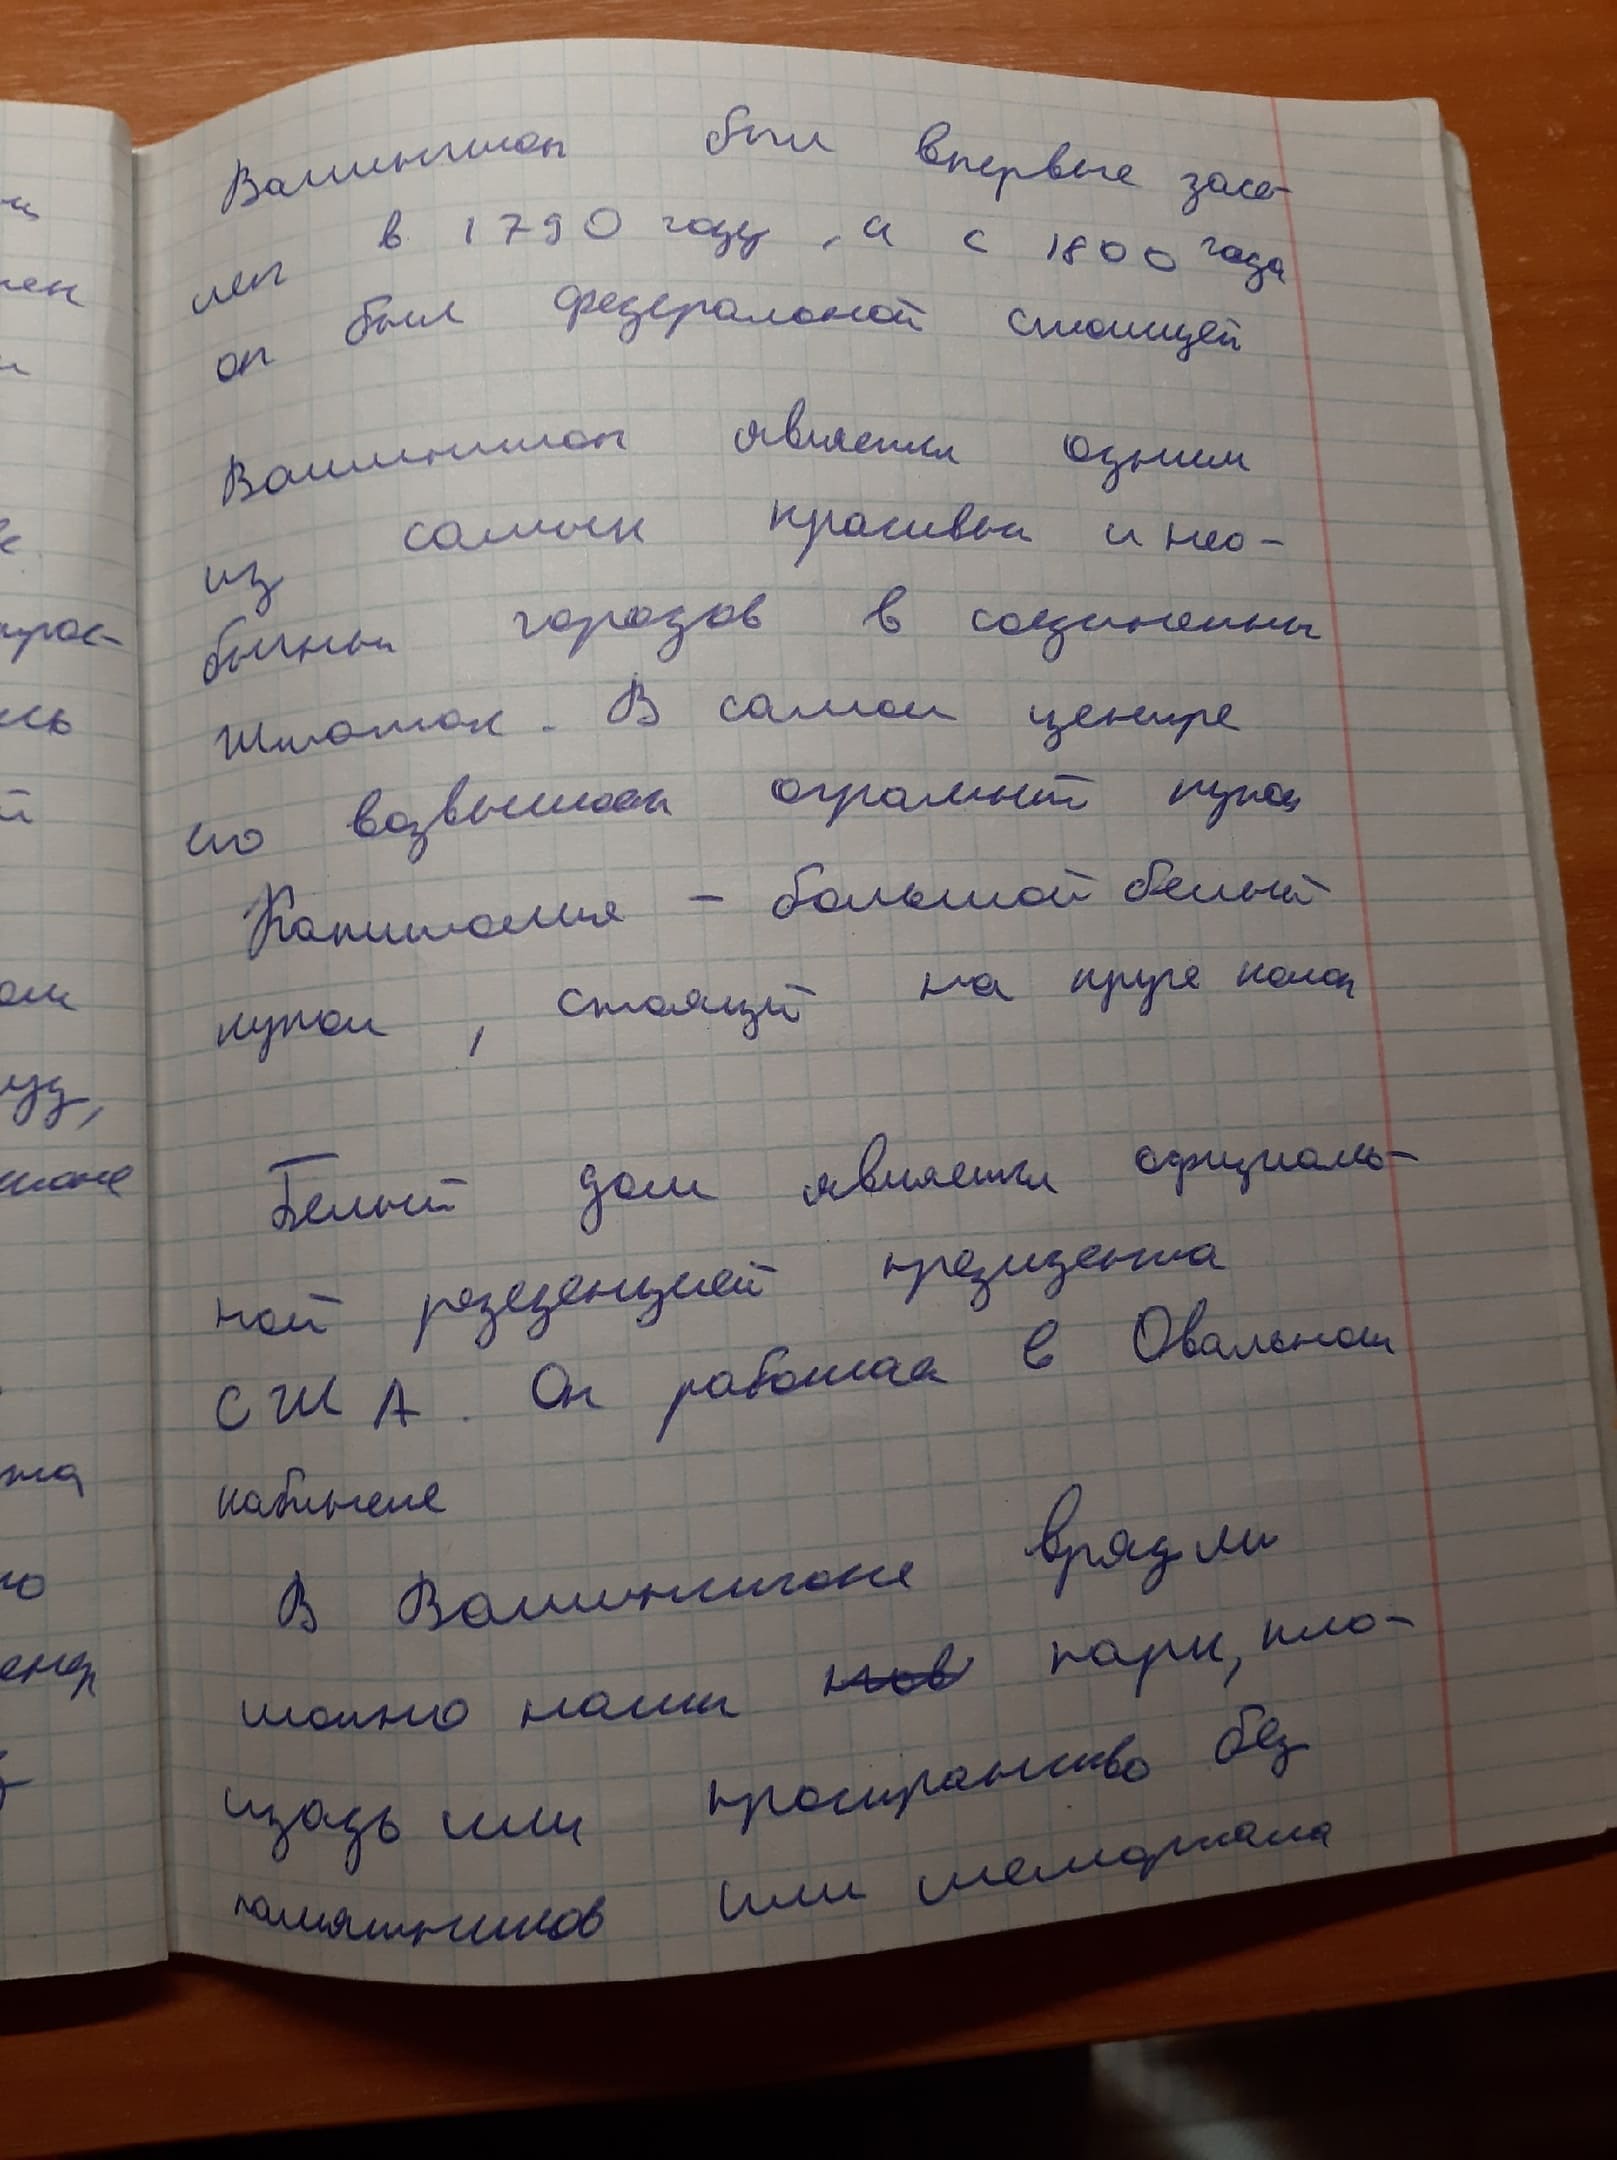 Вашингтон был впервые засе-
лен в 1790 году, а с 1800 года
он был федеральной столицей
Вашингтон является одним
из самых красивых и нео-
бычных городов в соединенных
Штатах. В самом центре
его возвышается огромный купол
Капитолия - большой белый
купол, стоящий на круге колон
Белый дом является официаль-
ной резеденцией президента
США. Он работает в Овальном
кабинете
В Вашингтоне вряд ли
можно найти парк, пло-
щадь или пространство без
памятников или мемориала